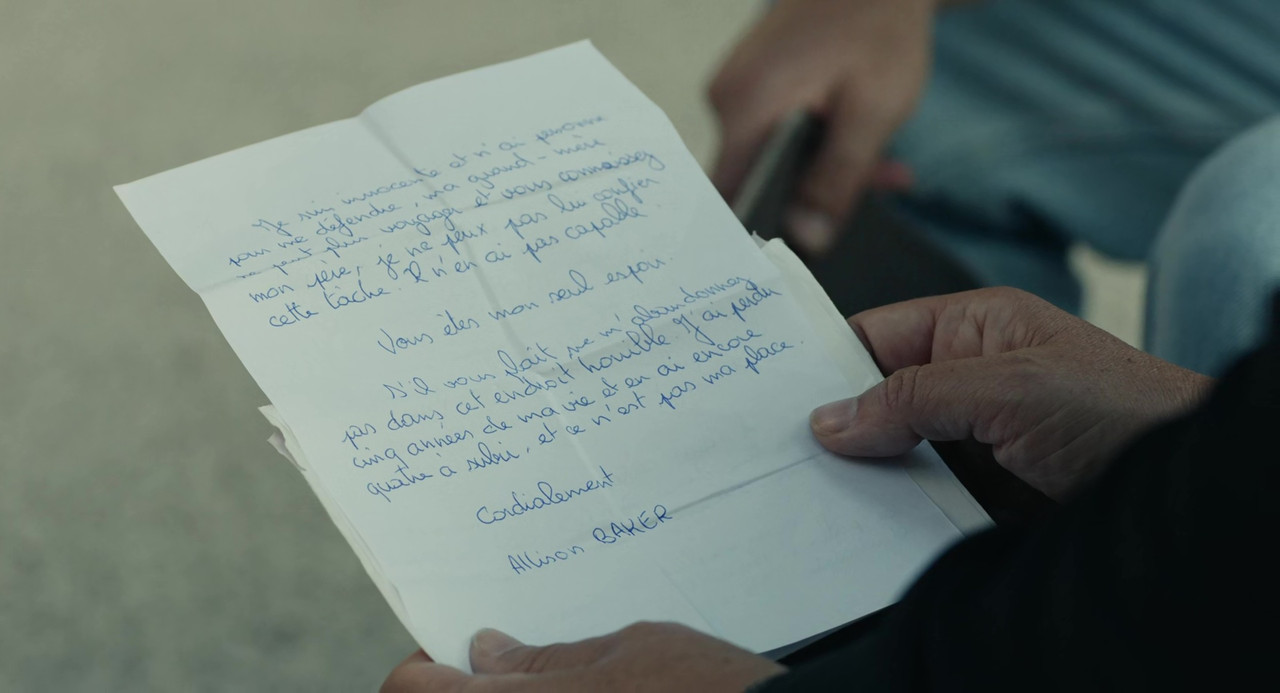 Je suis innocente et n'ai personne
pour me défendre, ma grand-mère
ne peut plus voyager et vous connaissez
mon père, je ne peux pas lui confier
cette tâche. Il n'en ai pas capable.
Vous êtes mon seul espoir.
S'il vous plait ne m'abandonnez
pas dans cet endroit horrible. J'ai perdu
cinq années de ma vie et en ai encore
quatre à subir, et ce n'est pas ma place.
Cordialement
Allison BAKER